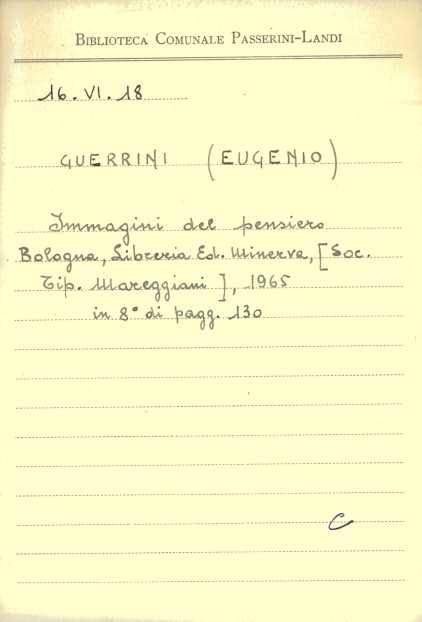 BIBLIOTECA COMUNALE PASSERINI-LANDI
16. VI. 18
GUERRINI (EUGENIO)
Immagini del pensiero
Bologna, Libreria Ed. Minerva, [Soc.
Tip. Mareggiani], 1965
in 8° di pagg. 130
C